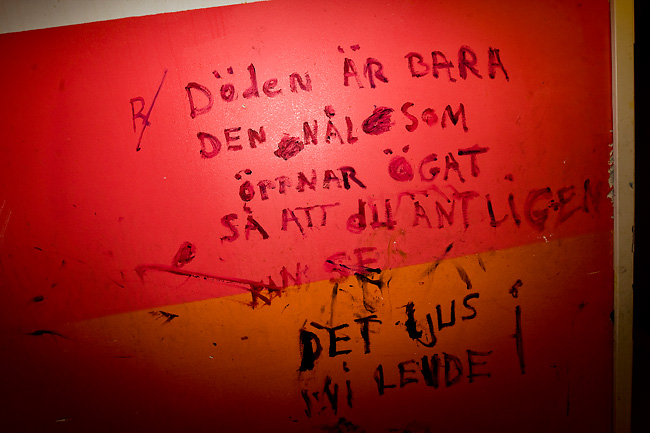 R/ Döden ÄR BARA
DEN NÅL SOM
ÖPPNAR ÖGAT
SÅ ATT dU ÄNTLIGEN
KAN SE
DET LJUS
VI LEVDE I